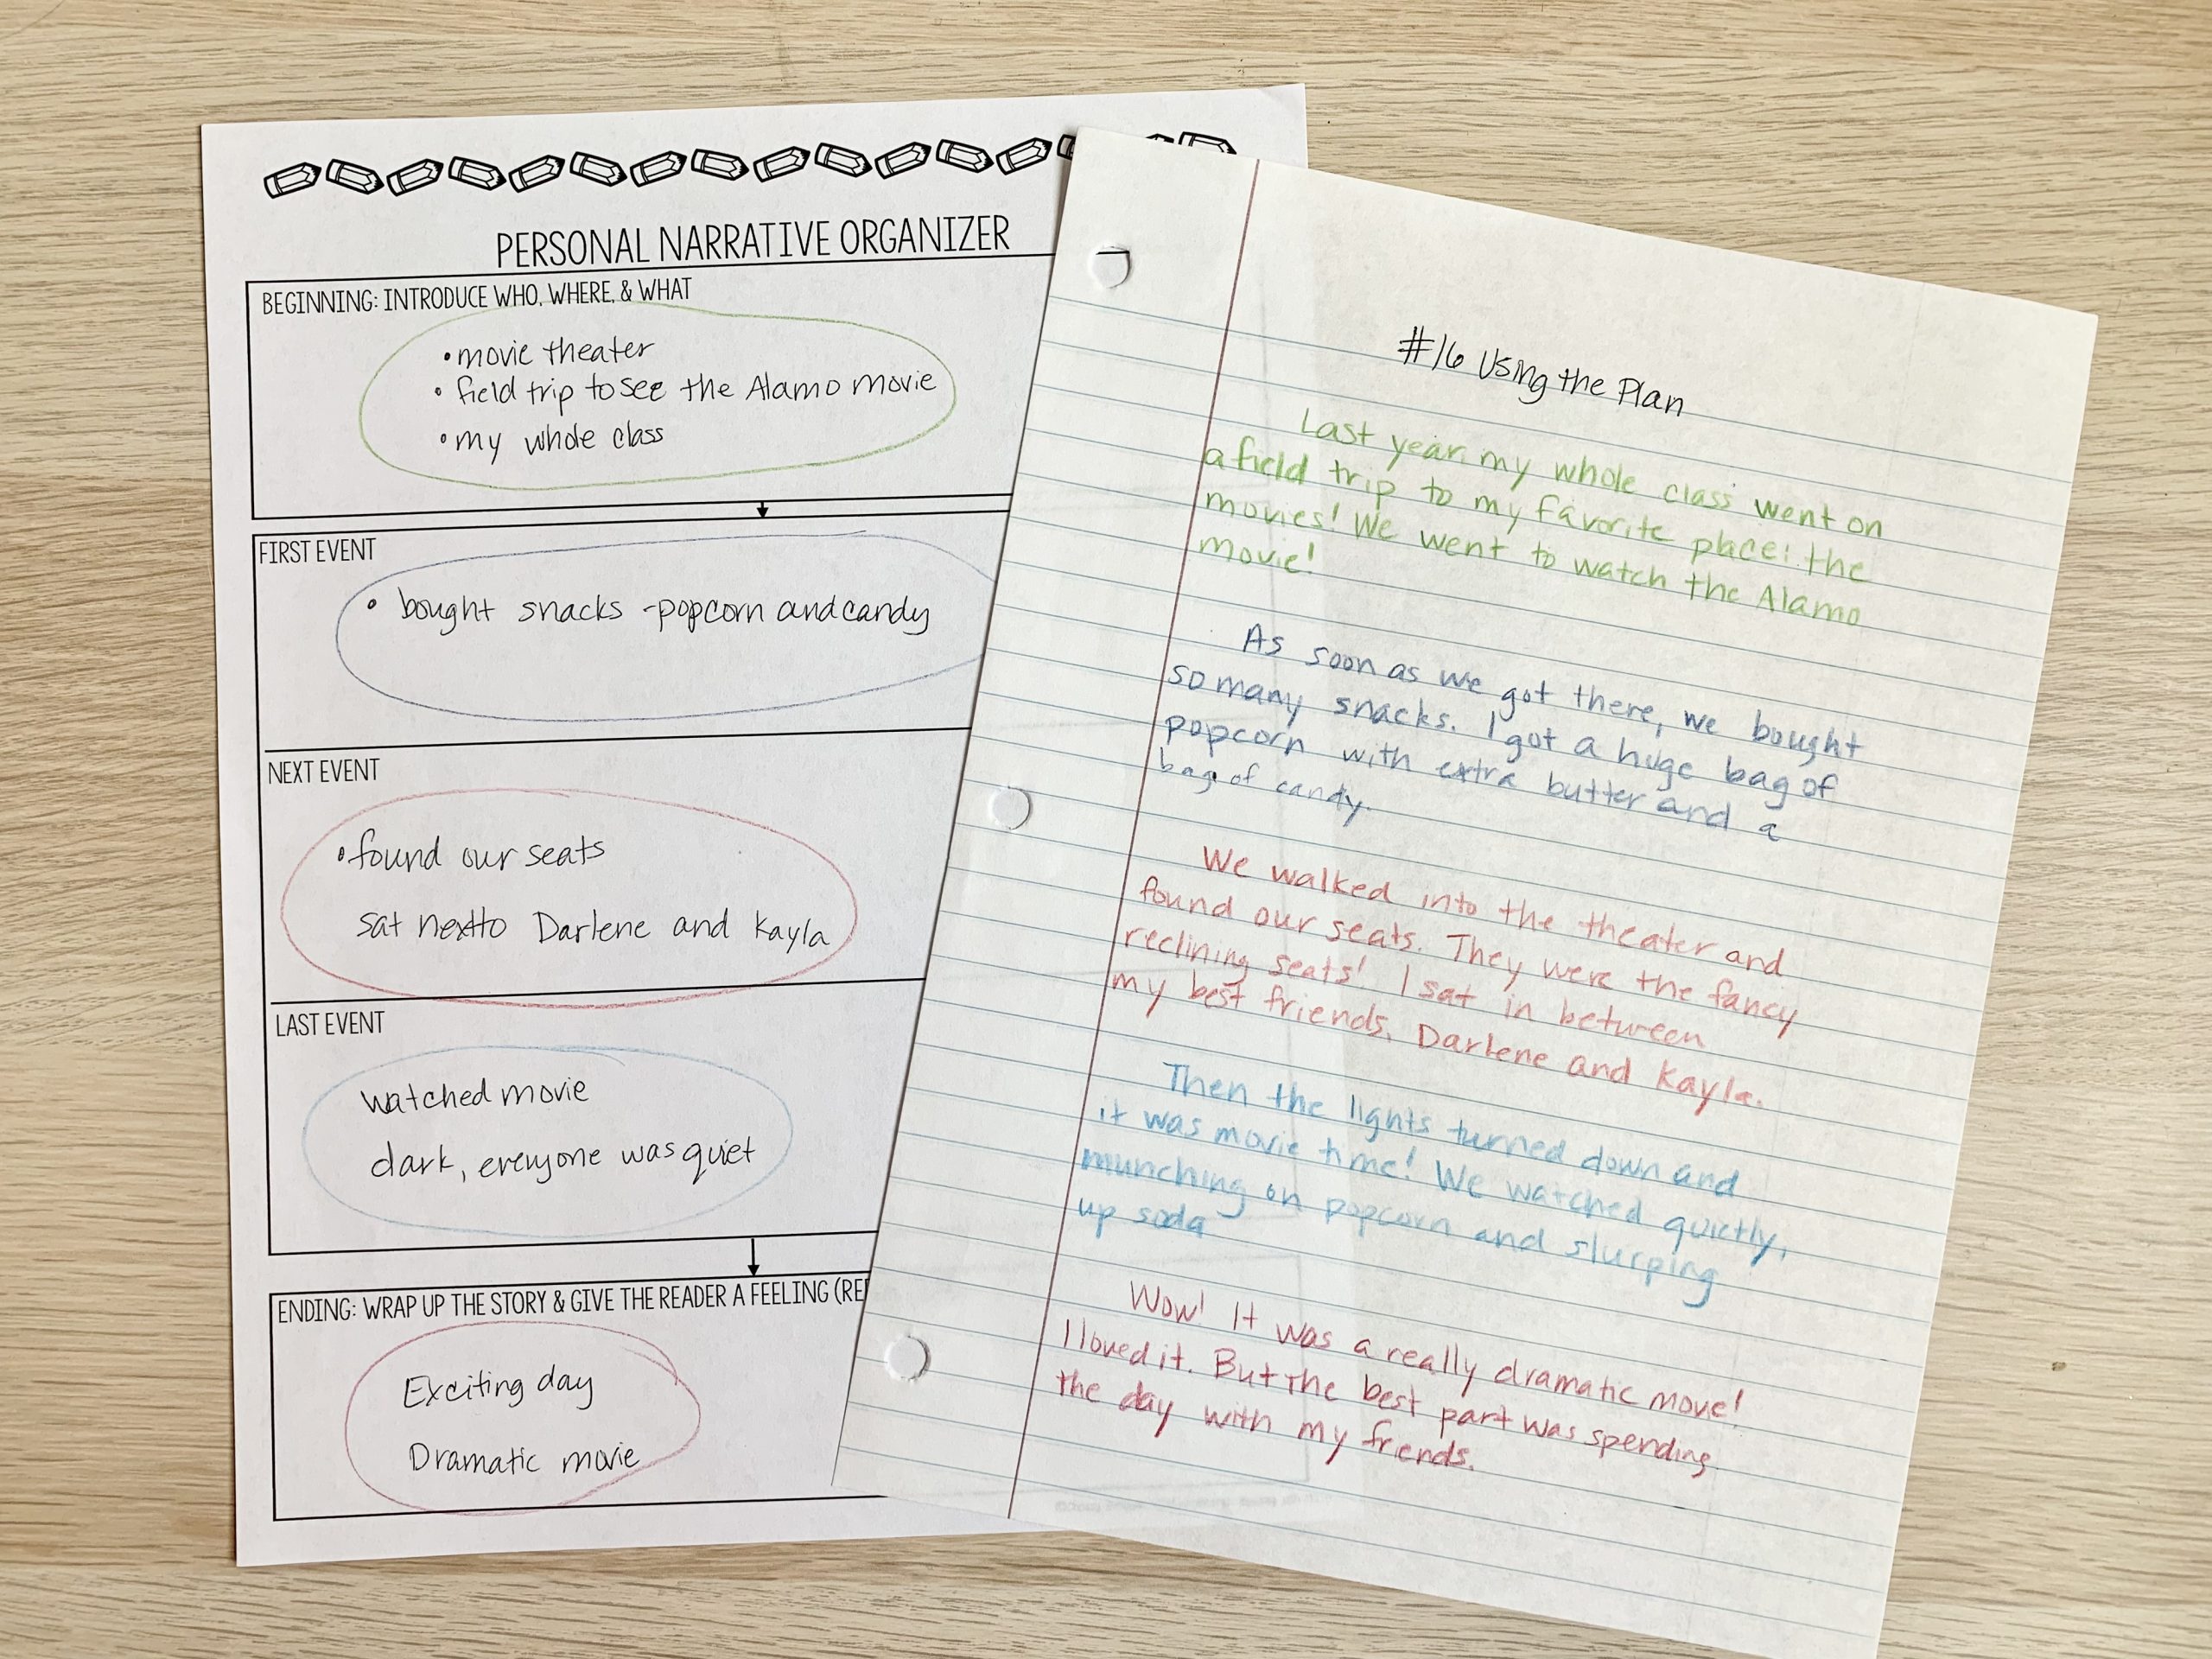 PERSONAL NARRATIVE ORGANIZER
BEGINNING: INTRODUCE WHO, WHERE, & WHAT
• movie theater
• field trip to see the Alamo movie
• my whole class
FIRST EVENT
• bought snacks - popcorn and candy
NEXT EVENT
• found our seats
sat next to Darlene and Kayla
LAST EVENT
watched movie
dark, everyone was quiet
ENDING: WRAP UP THE STORY & GIVE THE READER A FEELING
Exciting day
Dramatic movie
#16 Using the Plan
Last year, my whole class went on
a field trip to my favorite place: the
movies! We went to watch the Alamo
movie!
As soon as we got there, we bought
so many snacks. I got a huge bag of
popcorn with extra butter and a
bag of candy.
We walked into the theater and
found our seats. They were the fancy
reclining seats! I sat in between
my best friends, Darlene and Kayla.
Then the lights turned down and
it was movie time! We watched quietly,
munching on popcorn and slurping
up soda
Wow! It was a really dramatic move!
I loved it. But the best part was spending
the day with my friends.